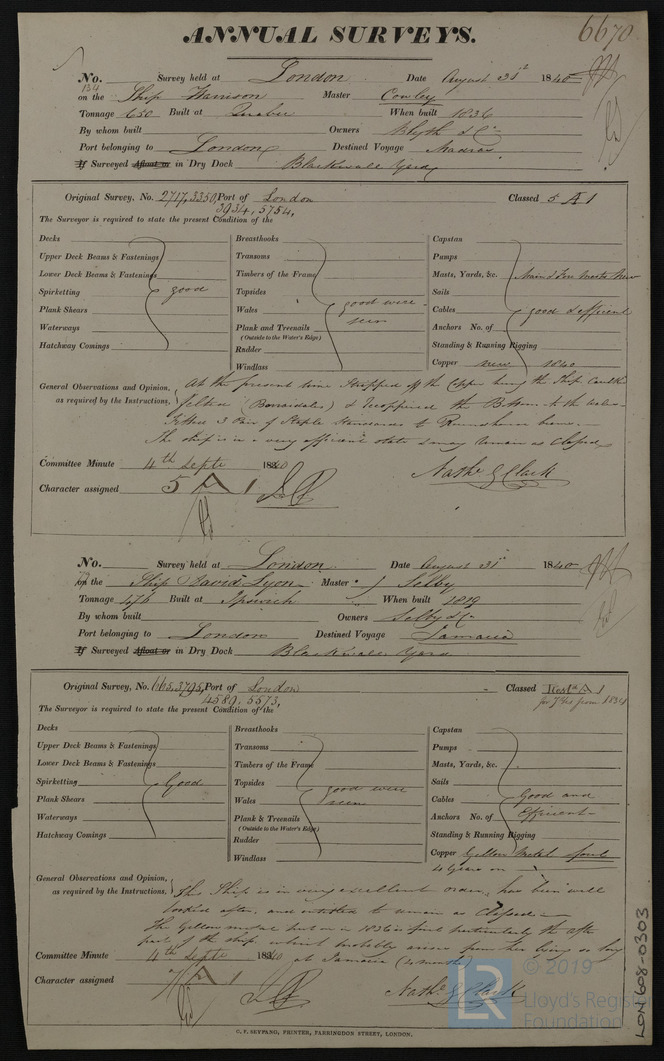 6670
ANNUAL SURVEYS.
No. 134 Survey held at London Date August 31st 1840
on the Ship Harrison Master Cowley
Tonnage 650 Built at Quebec When built 1836
By whom built Owners Blyth & Co
Port belonging to London Destined Voyage Madras
If Surveyed Afloat or in Dry Dock Blackwall Yard
Original Survey, No. 2717, 3350, Port of London Classed 5 A 1
3934, 5754,
The Surveyor is required to state the present Condition of the
Decks
Upper Deck Beams & Fastenings
Lower Deck Beams & Fastenings
Spirketting good
Plank Shears
Waterways
Hatchway Comings
Breasthooks
Transoms
Timbers of the Frame
Topsides
Wales good were seen
Plank and Treenails
(Outside to the Water's Edge)
Rudder
Windlass
Capstan
Pumps
Masts, Yards, &c. Main & Fore Masts New
Sails
Cables good & efficient
Anchors No. of
Standing & Running Rigging
Copper new 1840
General Observations and Opinion, At the present time stripped off the Copper hung the Ship Caulk
as required by the Instructions, felted (Borrodales) & Recoppered the Bottom to the Water
Fitted 3 Pair of Staple Standards to beams
The ship is in a very efficient state & may remain as Classed
Committee Minute 4th Septr 1840
Nathl G Clark
Character assigned 5 A 1
No. Survey held at London Date August 31st 1840
on the Ship David Lyon Master J Selby
Tonnage 476 Built at Ipswich When built 1819
By whom built Owners Selby & Co
Port belonging to London Destined Voyage Jamaica
If Surveyed Afloat or in Dry Dock Blackwall Yard
Original Survey, No. 665, 3795, Port of London Classed Restd A 1
4589, 5573, for 7 Yrs from 1834
The Surveyor is required to state the present Condition of the
Decks
Upper Deck Beams & Fastenings
Lower Deck Beams & Fastenings
Spirketting Good
Plank Shears
Waterways
Hatchway Comings
Breasthooks
Transoms
Timbers of the Frame
Topsides good were
Wales seen
Plank & Treenails
(Outside to the Water's Edge)
Rudder
Windlass
Capstan
Pumps
Masts, Yards, &c.
Sails
Cables Good and
Anchors No. of Efficient
Standing & Running Rigging
Copper Yellow Metal foul
4 Years on
General Observations and Opinion, This Ship is in very excellent order, has been well
as required by the Instructions, looked after, and entitled to remain as Classed
The Yellow metal put on in 1836 is foul particularly the after
part of the ship, which probably arises from her being so long
Committee Minute 4th Septr 1840 at Jamaica (4 months)
Character assigned A 1
Nathl G Clark
C. F. SEYFANG, PRINTER, FARRINGDON STREET, LONDON.
LON 608-0303
LR
© 2019
Lloyd's Register
Foundation